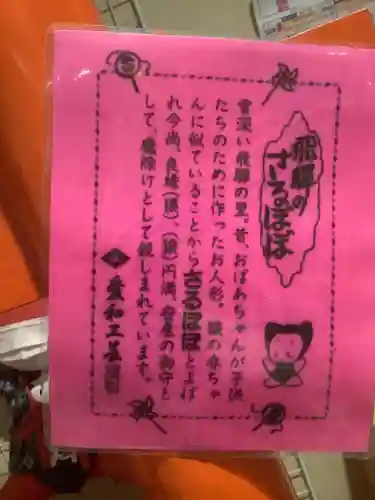 飛騨の
さるぼぼ
雪深い飛騨の里。昔、おばあちゃんが子供
たちのために作ったお人形。猿の赤ちゃ
んに似ていることからさるぼぼとよば
れ今尚、良縁(猿)、(猿)円満、安産の御守と
して、魔除けとして親しまれています。
愛和工芸